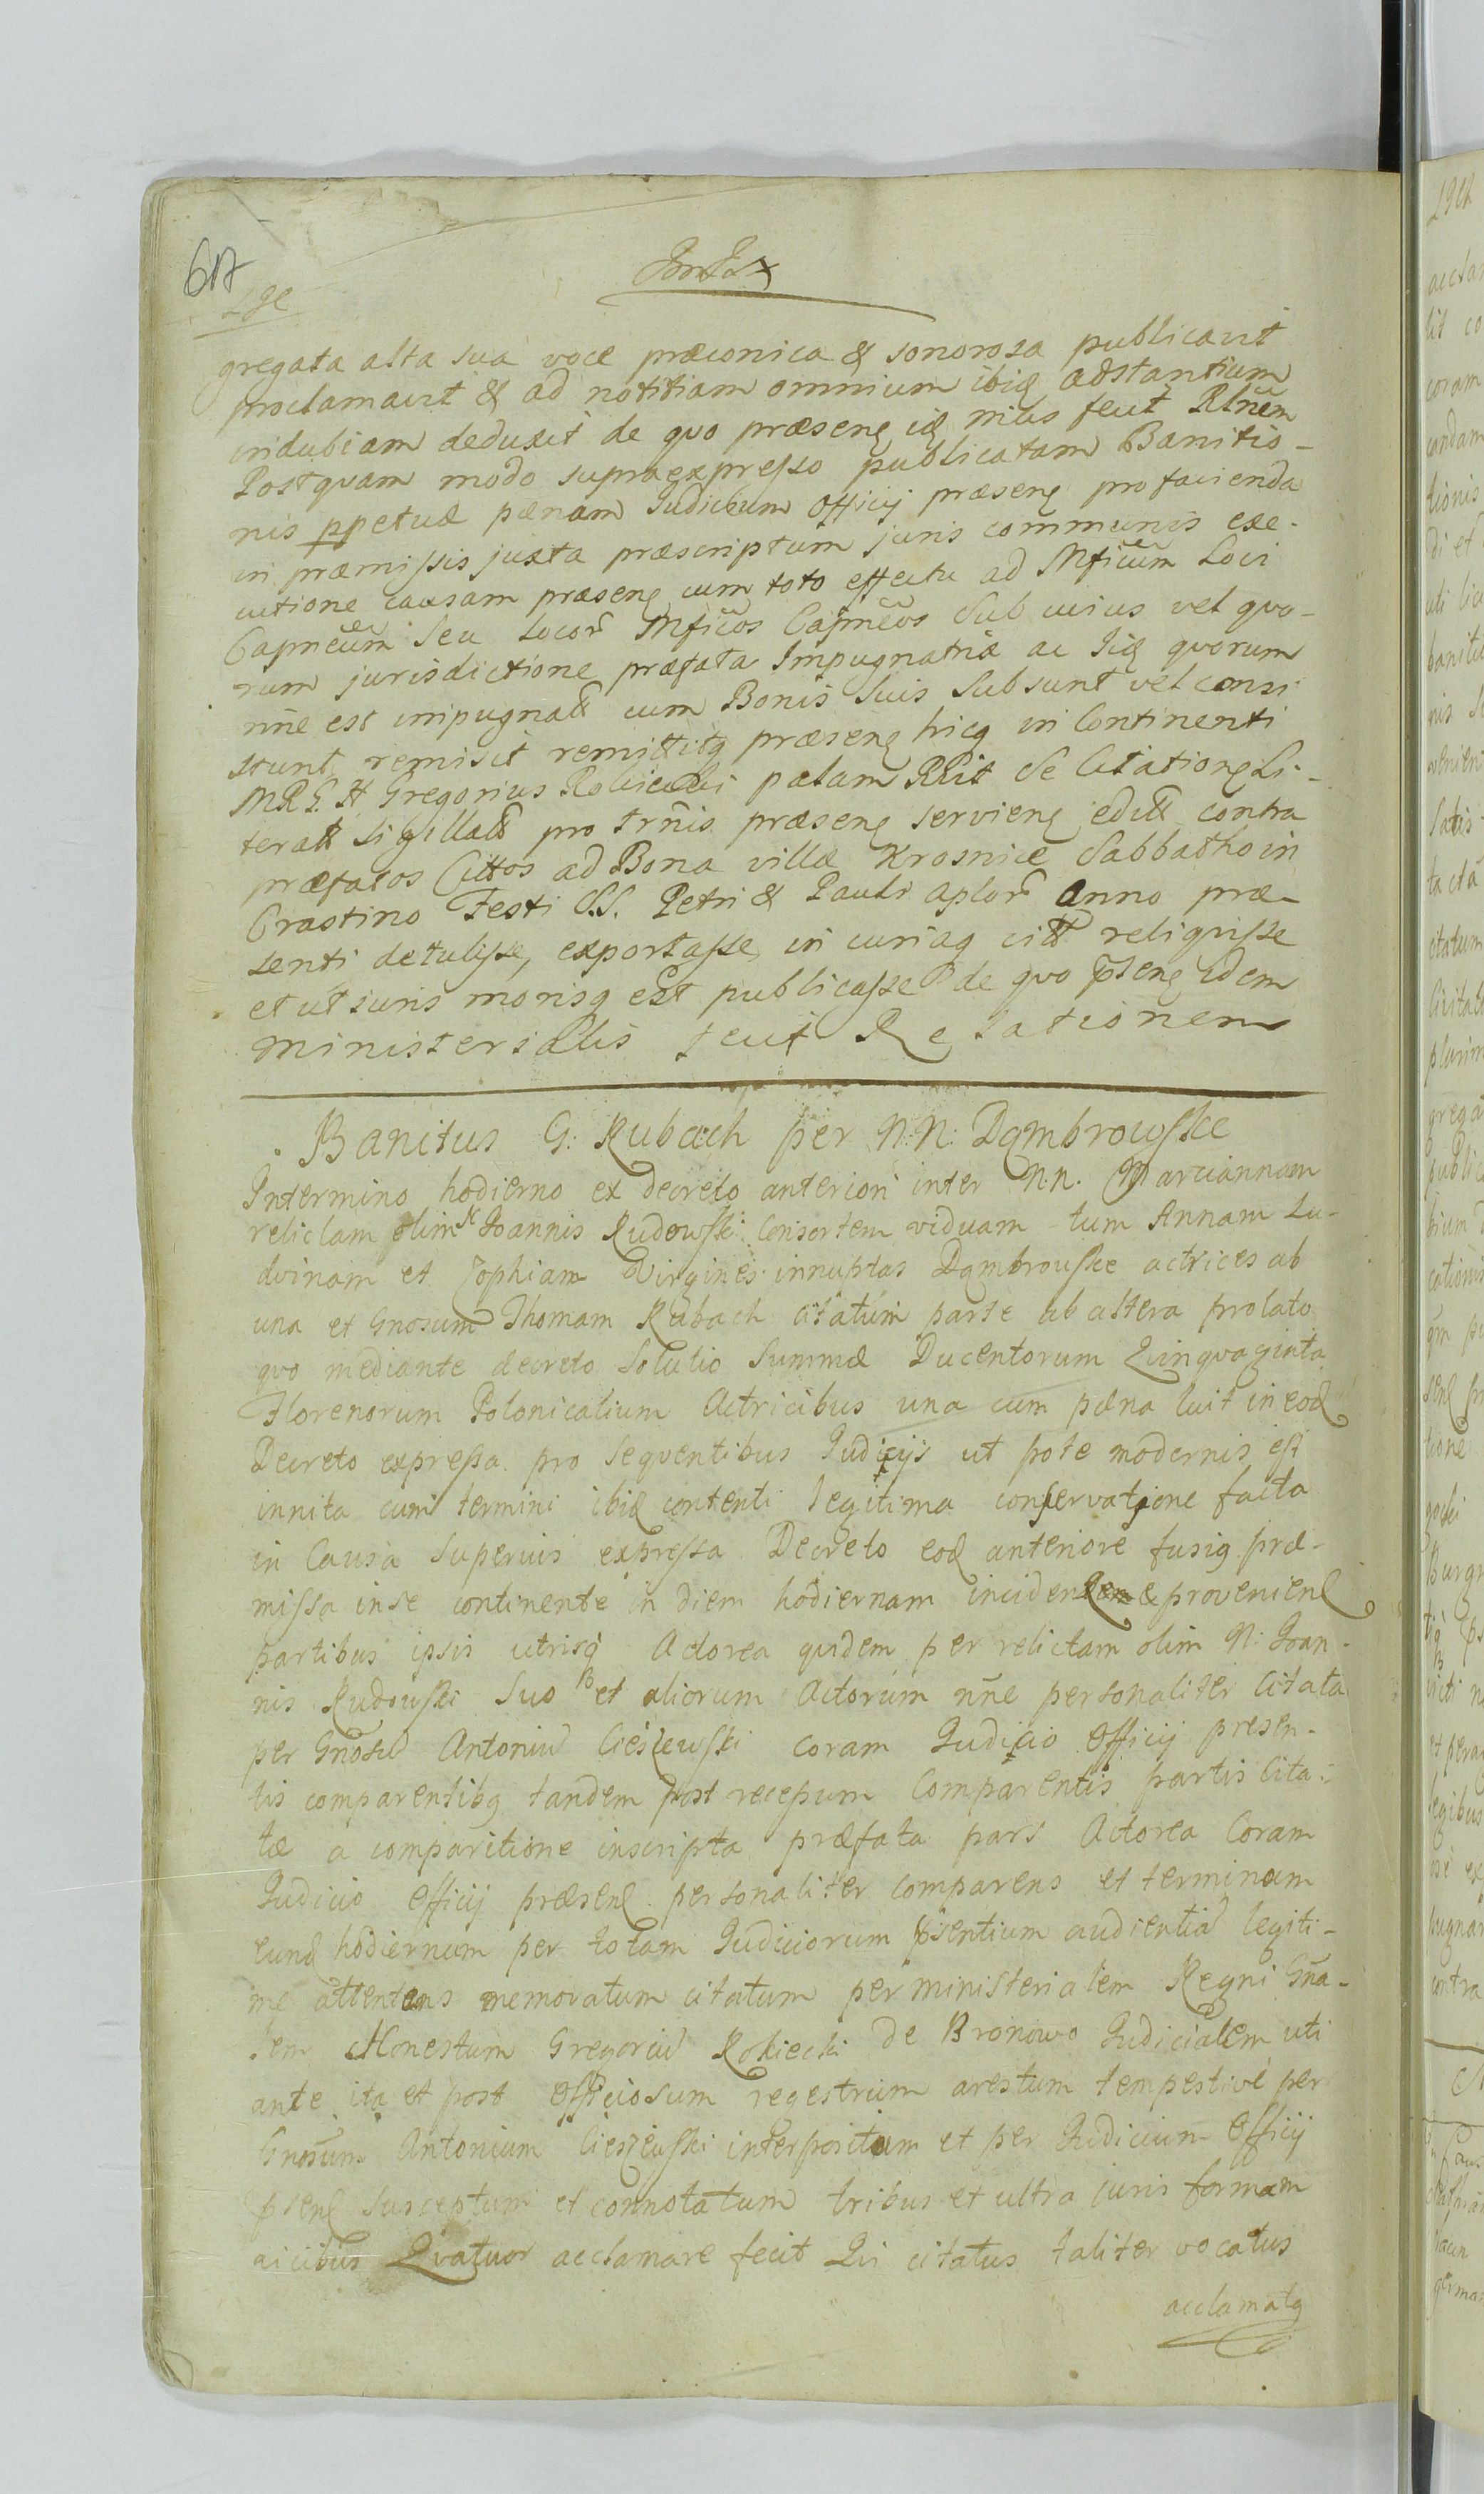 617
gregata alta sua voce præconica & sonorosa publicavit
proclamavit & ad notitiam omnium ibiq adstantium
indubiam deduxit de quo præsenq idq mius fecit Rlnēm
Postquam modo supraexpresso publicatam Banitio-
nis ppetuæ pænam Judicium Officij præsenq pro facienda
in præmissis juxta præscriptum juris communis exe-
cutione causam præsenq cum toto effectu ad Mficūm Loci
Capnēum Seu Locor Mficōs Capnēos Sub cuius vel quo-
rum jurisdictione præfata Impugnatriæ ac Iiq quorum
nn̄e est impugnatt cum Bonis Suis Subsunt vel consi
stunt, remisit remittitq præsenq hicq in Continenti
MRG. H Gregorius Rokiecki palam RRit Se Citationq Li-
teratt Sigillatt pro Trn̄is præsenq servienq editt contra
præfatos Cittos ad Bona villæ Krosnice Sabbatho in
Crastino Festi S.S. Petri & Pauli Aplor Anno præ-
senti detulisse, exportasse, in curiaq citt reliquisse
et ut juris morisq est publicasse de quo p̄senq idem
Ministerialis fecit Relationem
Banitus G: Rubach per N.N: Dąmbrowskie
In termino hodierno ex decreto anteriori inter N.N. Marciannam
relictam olim N Joannis Rudowski Consortem viduam tum Annam Lu-
dvinam et Zophiam Virgines innuptas Dąmbrouskie actrices ab
una et Gnosum Thomam Rubach citatum parte ab altera prolato
quo mediante decreto Solutio Summæ Ducentorum Quinquaginta
Florenorum Polonicalium Actricibus una cum pæna luit in eod
Decreto expressa pro sequentibus Judicijs ut pote modernis est
innita cum termini ibid contenti legitima conservatione facta
in Causa Superius expressa Decreto eod anteriore fusiq præ-
missa in se continente in diem hodiernam inciden & provenienę
partibus ipsis utrisq Actorea quidem per relictam olim N: Joan-
nis Rudouski Suo et aliorum Actorum nn̄e personaliter Citata
per Gnosū Antoniū Cieszewski coram Judicio Officij presen-
tis comparentibq tandem post recepum Comparentis partis Cita-
tæ a comparitione inscripta præfata pars Actorea Coram
Judicio Officij præsenę personaliter comparens et terminum
eund hodiernum per totam Judiciorum p̄sentium audientiā legiti-
me attentans memoratum citatum per ministerialem Regni Gn̄a-
lem Honestum Gregoriū Rokiecki de Bronowo Judicialem uti
ante ita et post Officiosum regestrum arestum tempestive per
Gnosum Antonium Cieszeuski interpositum et per Judicium Officij
p̄senę susceptum et connotatum tribus et ultra juris formam
vicibus Quatuor acclamare fecit Qui citatus taliter vocatus
acclamatq